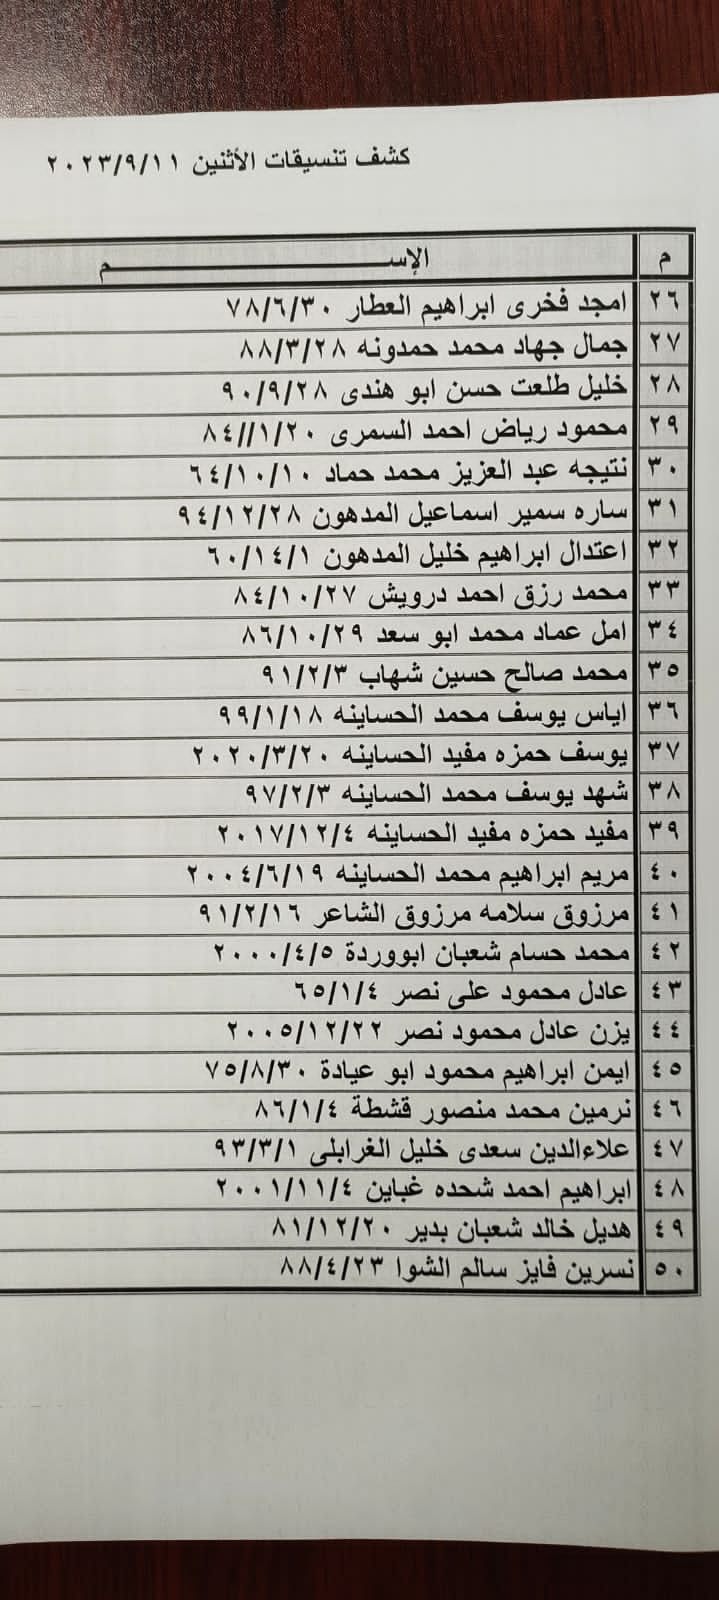 كشف تنسيقات الأثنين ٢٠٢٣/٩/١١
م الإســـــــــــــــــــــم
٢٦ امجد فخرى ابراهيم العطار ٧٨/٦/٣٠
٢٧ جمال جهاد محمد حمدونه ٨٨/٣/٢٨
٢٨ خليل طلعت حسن ابو هندى ٩٠/٩/٢٨
٢٩ محمود رياض احمد السمرى ٨٤//١/٢٠
٣٠ نتيجه عبد العزيز محمد حماد ٦٤/١٠/١٠
٣١ ساره سمير اسماعيل المدهون ٩٤/١٢/٢٨
٣٢ اعتدال ابراهيم خليل المدهون ٦٠/١٤/١
٣٣ محمد رزق احمد درويش ٨٤/١٠/٢٧
٣٤ امل عماد محمد ابو سعد ٨٦/١٠/٢٩
٣٥ محمد صالح حسين شهاب ٩١/٢/٣
٣٦ اياس يوسف محمد الحساينه ٩٩/١/١٨
٣٧ يوسف حمزه مفيد الحساينه ٢٠٢٠/٣/٢٠
٣٨ شهد يوسف محمد الحساينه ٩٧/٢/٣
٣٩ مفيد حمزه مفيد الحساينه ٢٠١٧/١٢/٤
٤٠ مريم ابراهيم محمد الحساينه ٢٠٠٤/٦/١٩
٤١ مرزوق سلامه مرزوق الشاعر ٩١/٢/١٦
٤٢ محمد حسام شعبان ابووردة ٢٠٠٠/٤/٥
٤٣ عادل محمود على نصر ٦٥/١/٤
٤٤ يزن عادل محمود نصر ٢٠٠٥/١٢/٢٢
٤٥ ايمن ابراهيم محمود ابو عيادة ٧٥/٨/٣٠
٤٦ نرمين محمد منصور قشطة ٨٦/١/٤
٤٧ علاءالدين سعدى خليل الغرابلى ٩٣/٣/١
٤٨ ابراهيم احمد شحده غباين ٢٠٠١/١١/٤
٤٩ هديل خالد شعبان بدير ٨١/١٢/٢٠
٥٠ نسرين فايز سالم الشوا ٨٨/٤/٢٣